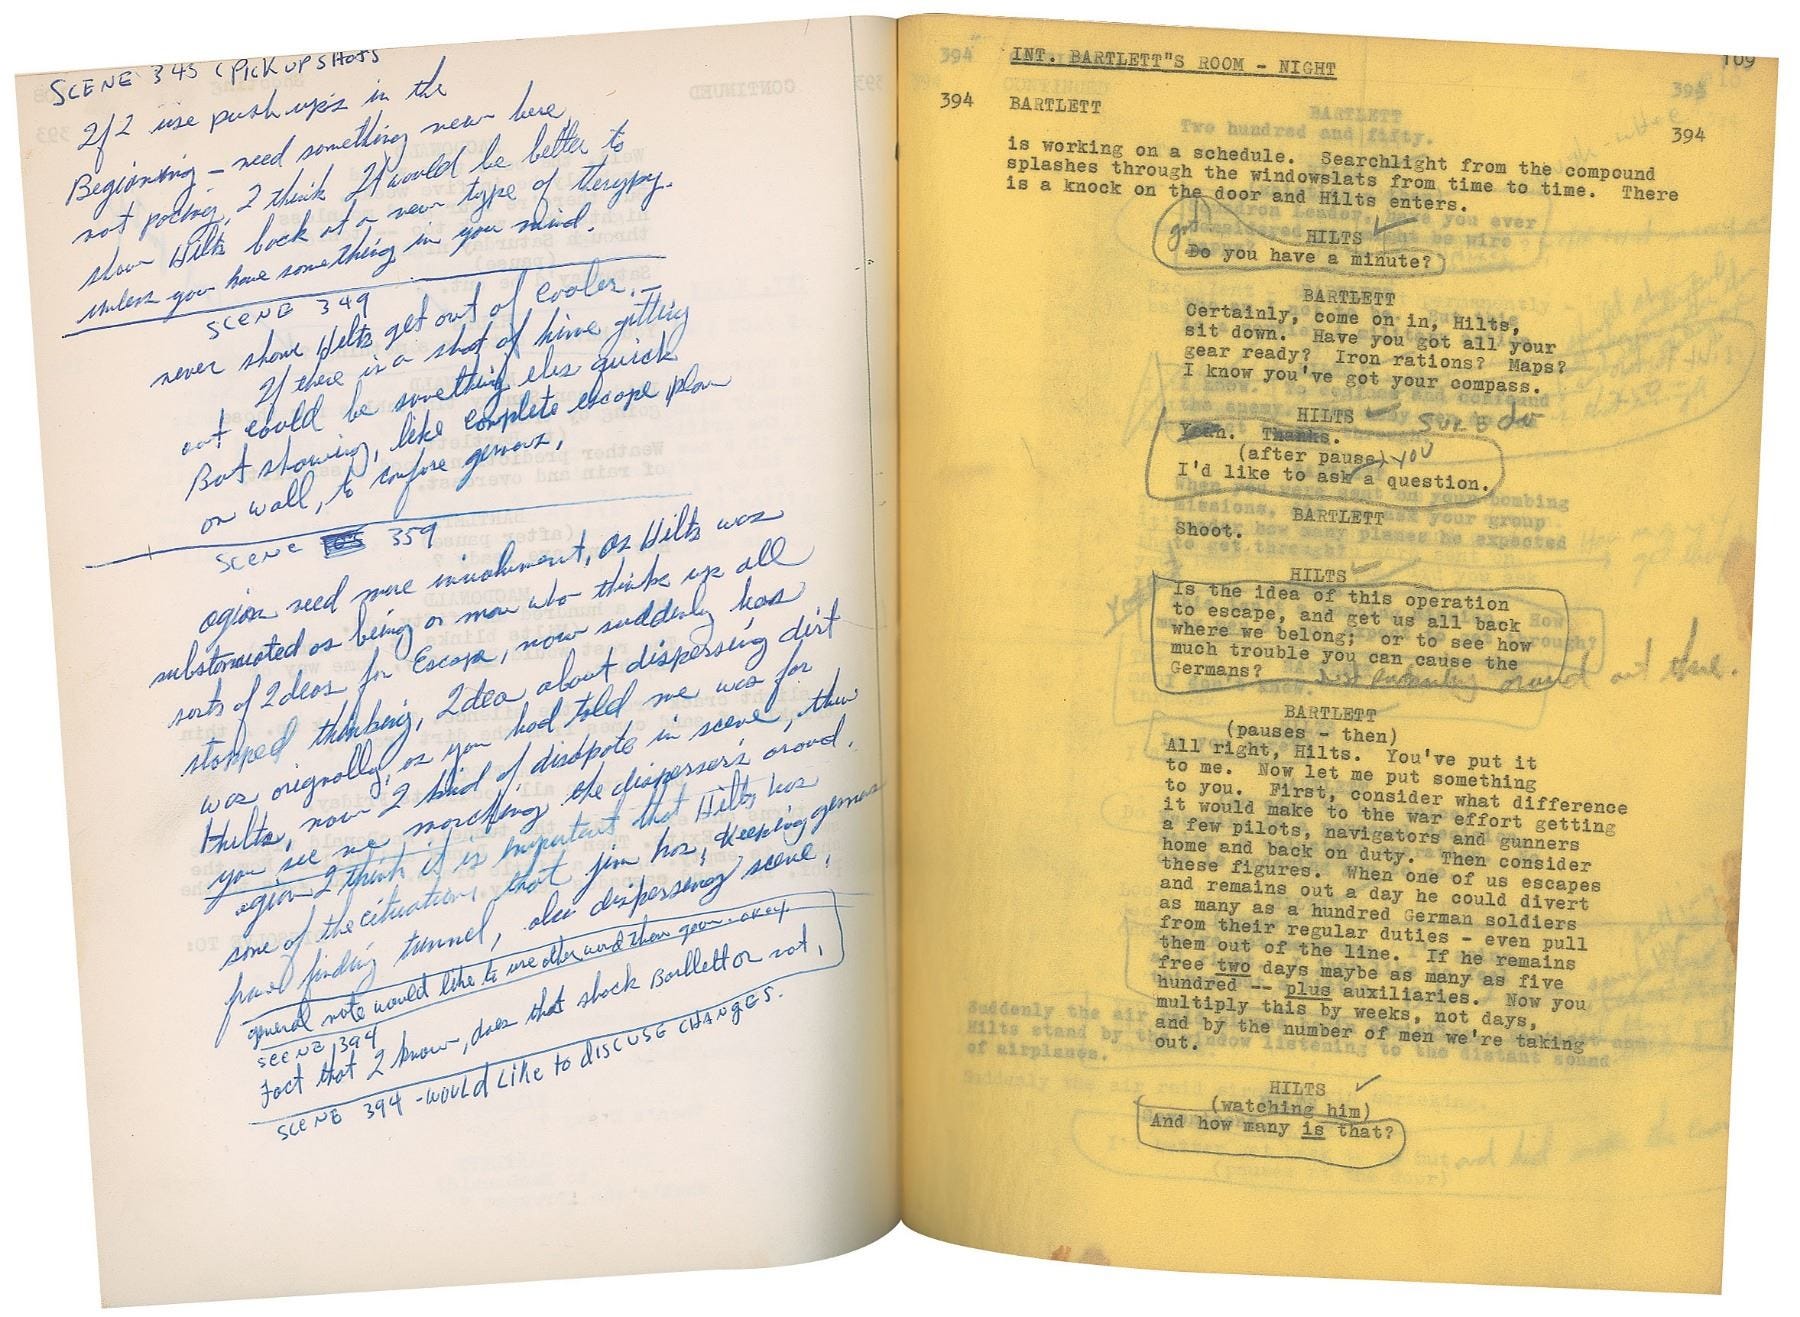 SCENE 345 (PICK UP SHOTS
If I use push ups in the
Beginning - need something new here,
not pacing, I think It would be better to
show Hilts back at a new type of therypy.
unless you have something in your mind.
SCENE 349
never show Hilts get out of cooler. -
If there is a shot of him getting
out could be something eles quick
But showing, like complete escape plan
on wall, to confuse germons,
SCENE 359
agian need more involvment, as Hilts was
substanuated as being a man who think up all
sorts of Ideas for Escape, now suddenly has
stopped thinking, Idea about dispersing dirt
was orignolly, as you had told me was for
Hilts, now I kind of disapate in scene, then
you see me marching the disperser's around.
agian I think it is important that Hilts has
some of the cituations that jim has, keeping germans
from finding tunnel, also dispersing scene,
general note would like to use other word than goon - okay
SCENE 394
Fact that I know, does that shock Bartlett or not,
SCENE 394 - WOULD LIKE to DISCUSE CHANGES.
109
394 INT. BARTLETT"S ROOM - NIGHT
394 BARTLETT 394
is working on a schedule. Searchlight from the compound
splashes through the windowslats from time to time. There
is a knock on the door and Hilts enters.
HILTS
got
Do you have a minute?
BARTLETT
Certainly, come on in, Hilts,
sit down. Have you got all your
gear ready? Iron rations? Maps?
I know you've got your compass.
HILTS SURE do
Yeah. Thanks.
(after pause) you
I'd like to ask a question.
BARTLETT
Shoot.
HILTS
Is the idea of this operation
to escape, and get us all back
where we belong; or to see how
much trouble you can cause the
Germans? around out there.
BARTLETT
(pauses - then)
All right, Hilts. You've put it
to me. Now let me put something
to you. First, consider what difference
it would make to the war effort getting
a few pilots, navigators and gunners
home and back on duty. Then consider
these figures. When one of us escapes
and remains out a day he could divert
as many as a hundred German soldiers
from their regular duties - even pull
them out of the line. If he remains
free two days maybe as many as five
hundred -- plus auxiliaries. Now you
multiply this by weeks, not days,
and by the number of men we're taking
out.
HILTS
(watching him)
And how many is that?